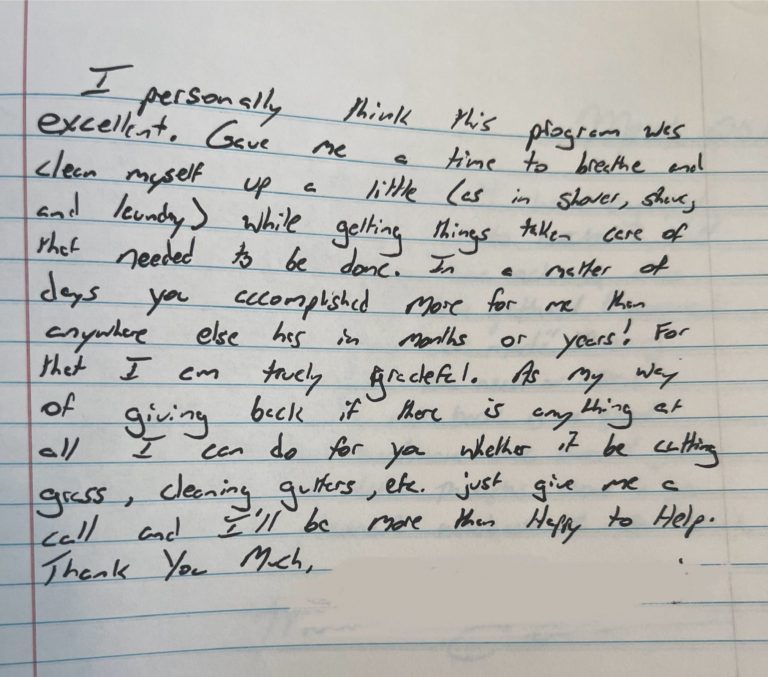 I personally think this program was
excellent. Gave me a time to breathe and
clean myself up a little (as in shower, shave,
and laundry) while getting things taken care of
that needed to be done. In a matter of
days you accomplished more for me than
anywhere else has in months or years! For
that I am truely grateful. As my way
of giving back if there is anything at
all I can do for you whether it be cutting
grass, cleaning gutters, etc. just give me a
call and I'll be more than Happy to Help.
Thank You Much,